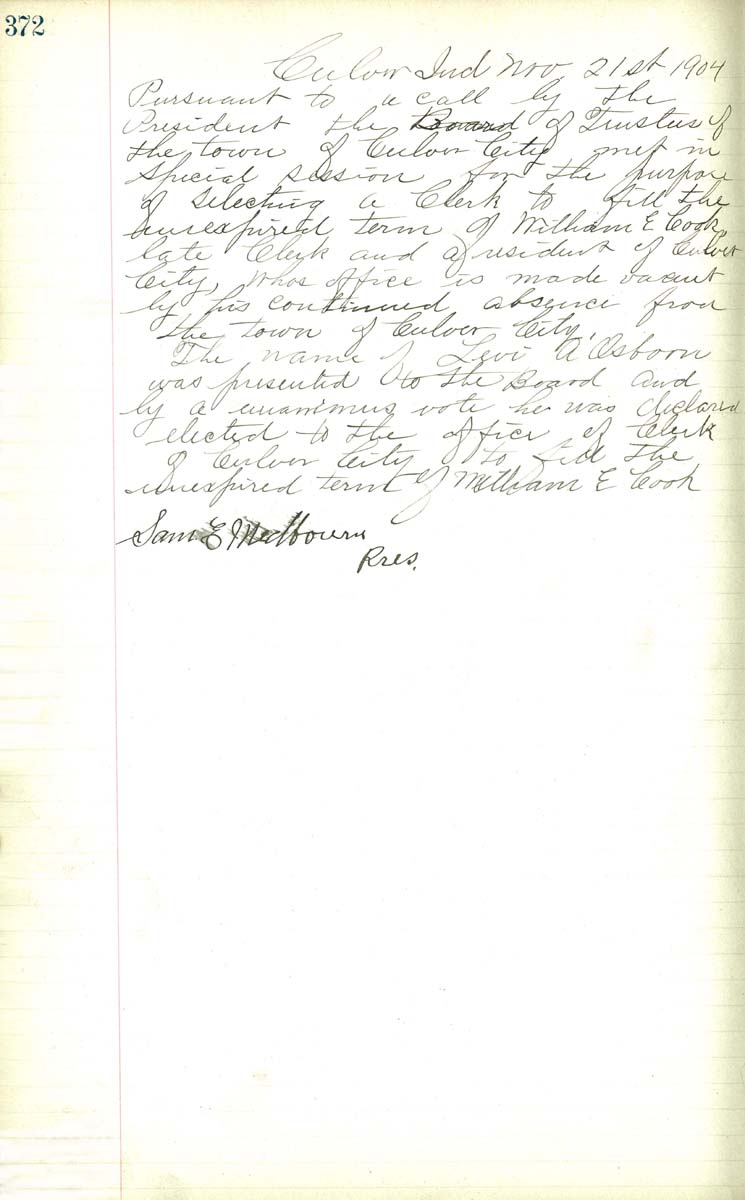 372
Culver Ind Nov. 21st 1904
Pursuant to a call by the
President the Board of Trustees of
the town of Culver City met in
special session for the purpose
of selecting a Clerk to fill the
unexpired term of William E Cook,
late Clerk and a resident of Culver
City, whos office is made vacant
by his continued absence from
the town of Culver City.
The name of Levi A Osborn
was presented to the Board and
by a unanimus vote he was declared
elected to the office of Clerk
of Culver City to fill the
unexpired term of William E Cook
Sam E Medbourn
Pres.